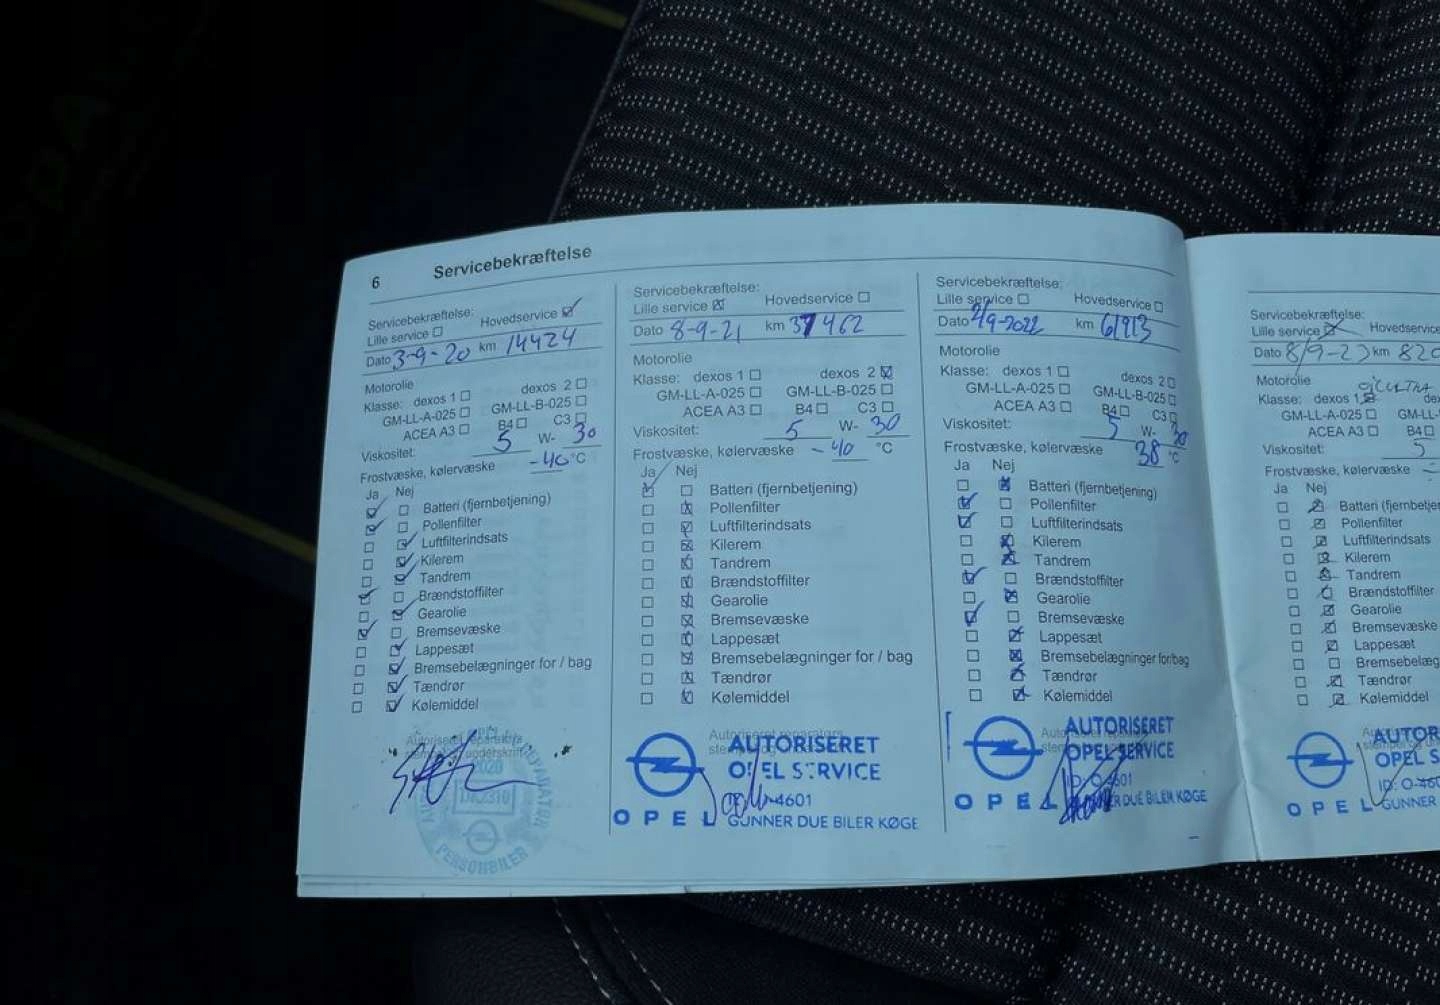 6 Servicebekræftelse
Servicebekræftelse:
Lille service Hovedservice
Dato 3-9-20 km 14424
Motorolie
Klasse: dexos 1 dexos 2
GM-LL-A-025 GM-LL-B-025
ACEA A3 B4 C3
Viskositet: 5 W- 30
Frostvæske, kølervæske -40 °C
Ja Nej
Batteri (fjernbetjening)
Pollenfilter
Luftfilterindsats
Kilerem
Tandrem
Brændstoffilter
Gearolie
Bremsevæske
Lappesæt
Bremsebelægninger for / bag
Tændrør
Kølemiddel
Autoriseret reparatørs
2020
PERSONBILER
Servicebekræftelse:
Lille service Hovedservice
Dato 8-9-21 km 37462
Motorolie
Klasse: dexos 1 dexos 2
GM-LL-A-025 GM-LL-B-025
ACEA A3 B4 C3
Viskositet: 5 W- 30
Frostvæske, kølervæske -40 °C
Ja Nej
Batteri (fjernbetjening)
Pollenfilter
Luftfilterindsats
Kilerem
Tandrem
Brændstoffilter
Gearolie
Bremsevæske
Lappesæt
Bremsebelægninger for / bag
Tændrør
Kølemiddel
AUTORISERET
OPEL SERVICE
4601
OPEL GUNNER DUE BILER KØGE
Servicebekræftelse:
Lille service Hovedservice
Dato 2/9-2022 km 61913
Motorolie
Klasse: dexos 1 dexos 2
GM-LL-A-025 GM-LL-B-025
ACEA A3 B4 C3
Viskositet: 5 W- 30
Frostvæske, kølervæske 38 °C
Ja Nej
Batteri (fjernbetjening)
Pollenfilter
Luftfilterindsats
Kilerem
Tandrem
Brændstoffilter
Gearolie
Bremsevæske
Lappesæt
Bremsebelægninger for/bag
Tændrør
Kølemiddel
AUTORISERET
OPEL SERVICE
ID: O-4601
OPEL GUNNER DUE BILER KØGE
Servicebekræftelse:
Lille service Hovedservice
Dato 8/9-23 km 820
Motorolie
Klasse: dexos 1 de
GM-LL-A-025 GM-LL
ACEA A3 B4
Viskositet: 5
Frostvæske, kølervæske -
Ja Nej
Batteri (fjernbetjen
Pollenfilter
Luftfilterindsats
Kilerem
Tandrem
Brændstoffilter
Gearolie
Bremsevæske
Lappesæt
Bremsebelæg
Tændrør
Kølemiddel
AUTOR
OPEL S
ID: O-460
OPEL GUNNER